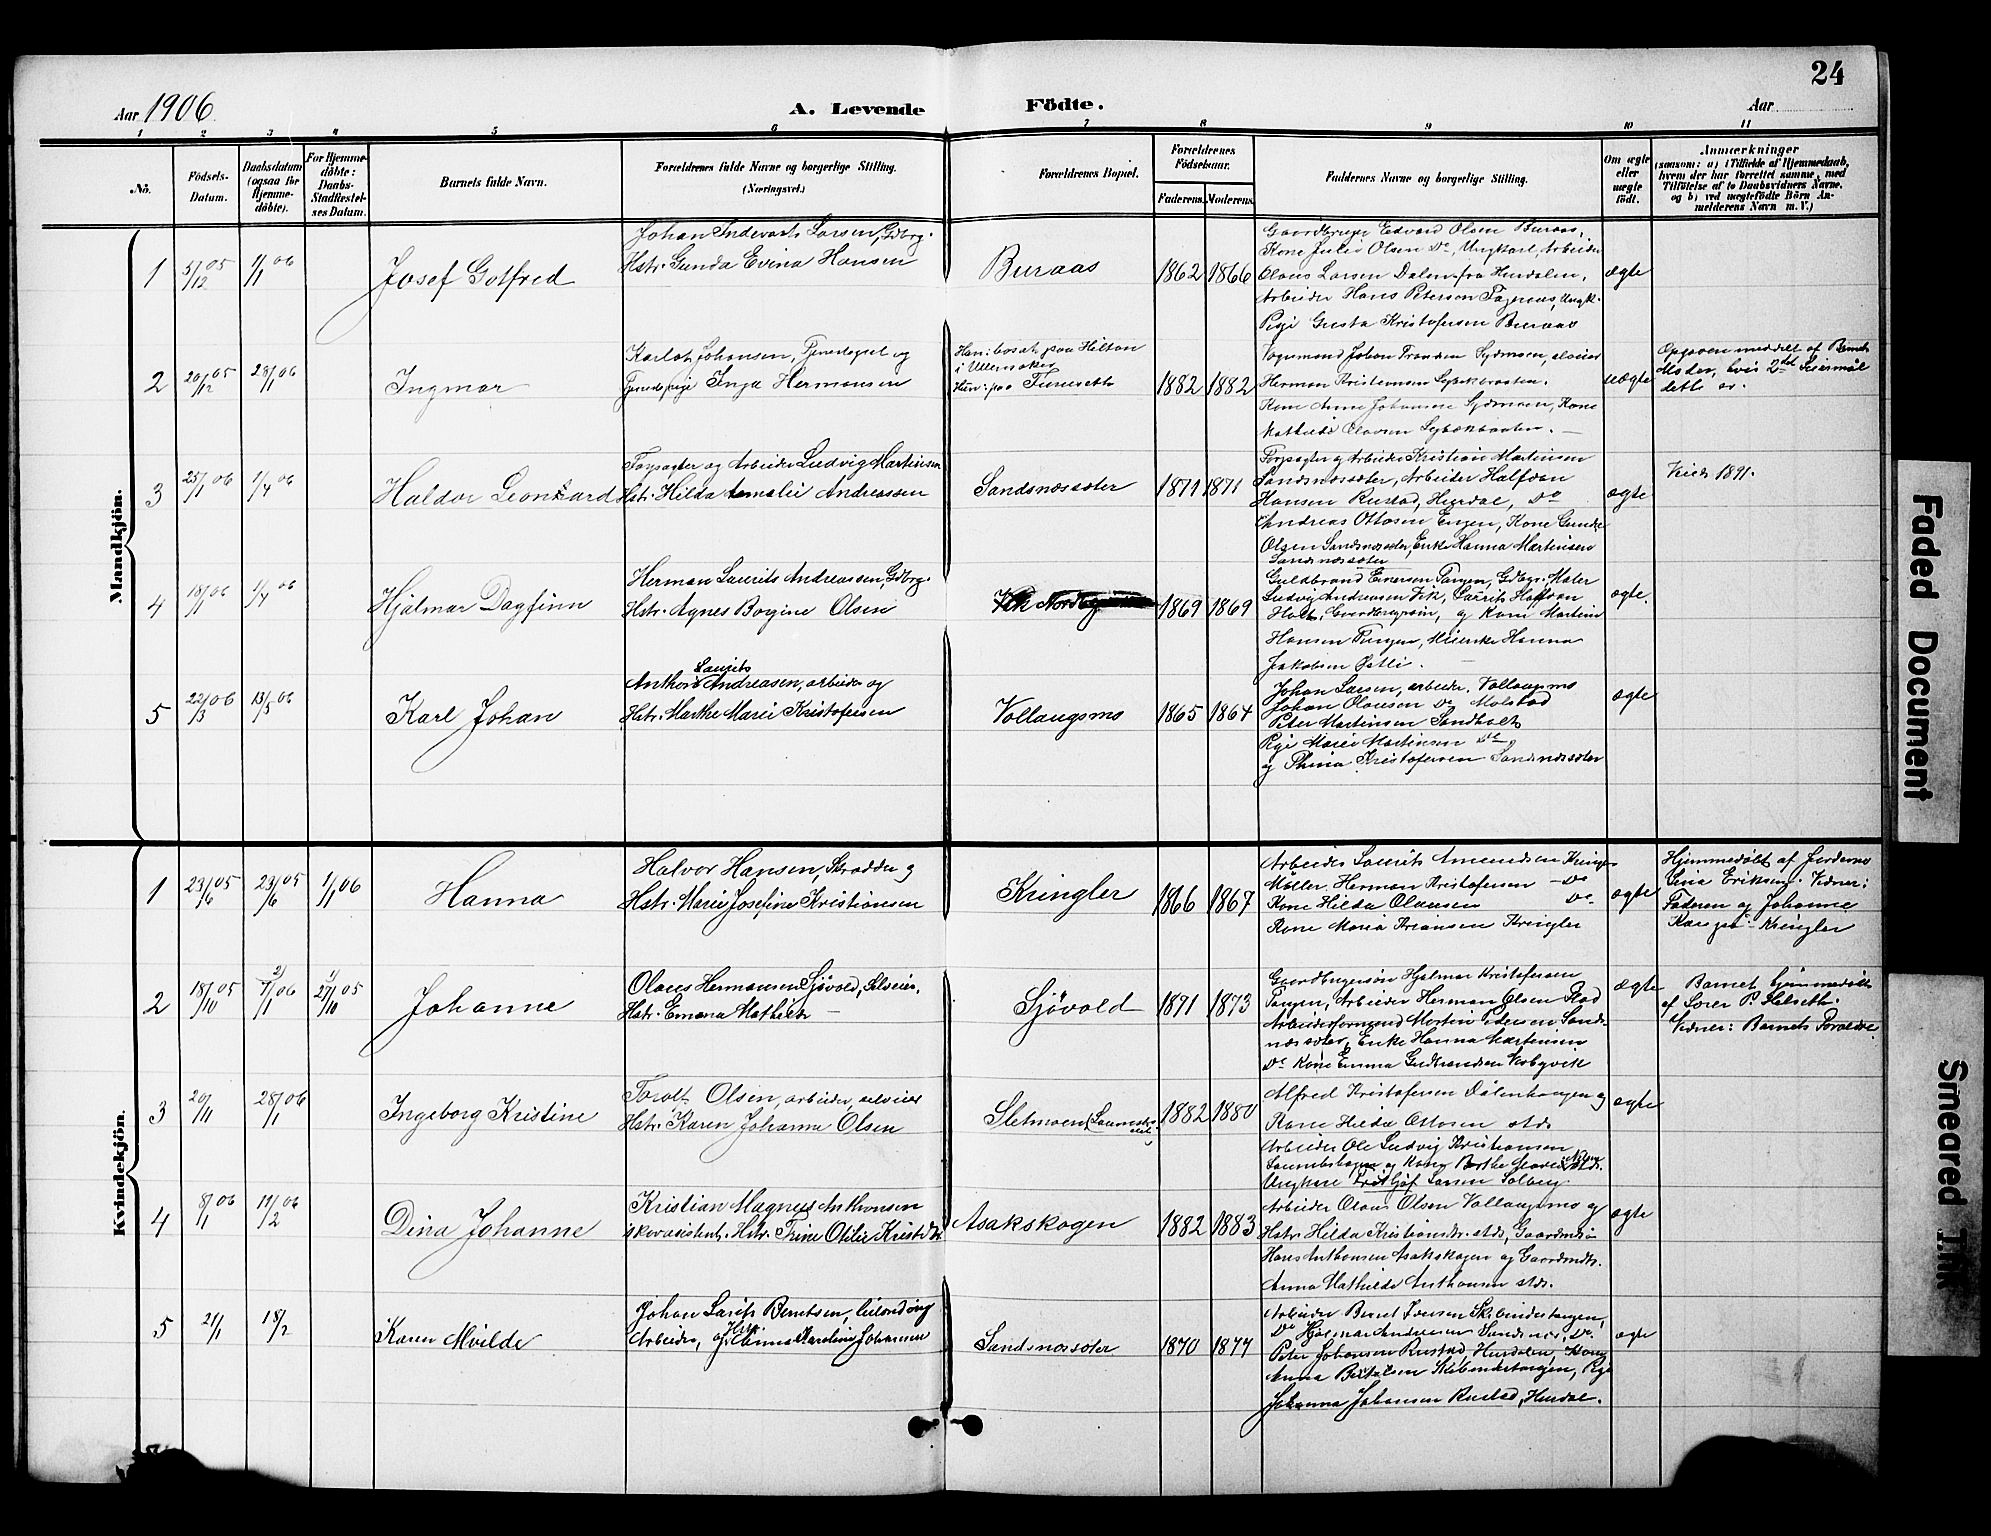 24
Aar 1906
A. Levende Födte.
Aar
1 2 3 4 5 6 7 8 9 10 11
No.
Födsels-Datum.
Daabsdatum (ogsaa for Hjemme-döbte).
For Hjemme-döbte: Daabs-Stadfæstel-ses Datum.
Barnets fulde Navn.
Forældrenes fulde Navne og borgerlige Stilling. (Næringsvei.)
Forældrenes Bopæl.
Forældrenes Födselsaar.
Faderens. Moderens.
Faddernes Navne og borgerlige Stilling.
Om ægte eller uægte födt.
Anmærkninger
(saasom: a) i Tilfælde af Hjemmedaab,
hvem der har forrettet samme, med
Tilföielse af to Daabsvidners Navne,
og b) ved uægtefödte Börn An-
melderens Navn m. V.)
Mandkjön.
1 5/12 05 1/1 06
Josef Gotfred
Johan Indevarth Larsen, Gdbrg.
Hstr. Gunda Evina Hansen
Buraas
1862 1866
Gaardbruger Edvard Olsen Buraas,
Kone Julie Olsen Do, Ungkarl, Arbeider
Olaus Larsen Dalen fra Hurdalen,
Arbeider Hans Petersen Fagernes, Ungk.
Pige Gusta Kristofersen Buraas
ægte
2 20/12 05 28/1 06
Ingmar
Karlot Johansen, Tjenestegut og
Tjenestepige Inga Hermansen
Han: bosat paa Hilton
i Ullensaker
Hun: paa Tuneseth
1882 1882
Vognmand Johan Trondsen Sydmoen, selveier
Herman Kristensen Sybekbraaten.
Kone Anne Johanne Sydmoen, Kone
Mathilde Olavsen Sybekbraaten.
uægte
Opgaven meddelt af Barnets
Moder, hvis 2det Leiermål
dette er.
3 25/1 06 1/4 06
Haldor Leonhard
Forpagter og Arbeider Ludvig Martinsen
Hstr. Hilda Amalie Andreassen
Sandsnæssæter
1871 1871
Forpagter og Arbeider Kristian Martinsen
Sandsnæssæter, Arbeider Halfdan
Hansen Rustad, Hurdal, Do
Andreas Ottosen Engen, Kone Gunda
Olsen Sandsnæssæter, Enke Hanna Martinsen
Sandsnæssæter
ægte
Viede 1891.
4 18/1 06 1/4 06
Hjalmar Dagfinn
Herman Laurits Andreassen, Gdbrg.
Hstr. Agnes Borgine Olsen
Vik
1869 1869
Guldbrand Evensen Tangen, Gdbgr. Maler
Ludvig Andreasen Vik, Laurits Halfdan
Holt, Gaardbrugersön, og Kone Martine
Hansen Tangen, Hanna
Jakobsen Østli.
ægte.
5 22/3 06 13/5 06
Karl Johan
Laurits
Anthon Andreasen, arbeider og
Hstr. Marthe Marie Kristofersen
Vollaugsmo
1865 1864
Johan Larsen, arbeider. Vollaugsmo
Johan Olausen Do Molstad
Peter Martinsen Sandholt
Pige Marie Martinsen Do
og Thina Kristofersen Sandsnæssæter
ægte
Kvindekjön.
1 23/6 05 23/6 05 1/1 06
Hanna
Halvor Hansen, Skrædder og
Hstr. Marie Josefine Kristiansen
Kringler
1866 1867
Arbeider Laurits Amundsen Kringler
Möller. Herman Kristofersen – Do
Kone Hilda Olausen Do
Kone Maria Kringler
ægte
Hjemmedöbt af Jordemor
Lina Eriksen. Vidner:
Faderen og Johanne
Kringler
2 18/10 05 7/1 06 27/10 05
Johanne
Olaus Hermansen Sjövold, Selveier,
Hstr. Emma Mathilde –
Sjövold
1871 1873
Gaardbrugersön Hjalmar Kristofersen
Tangen, Arbeider Herman Olsen Stad
Arbeiderformand Martin Pedersen Sands-
næssæter, Enke Hanna Martinsen
Do Kone Emma Gudbrandsen Rosbyvik
ægte
Barnet hjemmedöbt
af Lærer P. Helseth.
Vidner: Barnets Forældre
3 20/11 28/1 06
Ingeborg Kristine
Toralf Olsen, arbeider, selveier
Hstr. Karen Johanne Olsen
Sletmoen
1882 1880
Alfred Kristofersen Dalenhaugen og
Kone Hilda Ottosen stds.
Arbeider Ole Ludvig Kristiansen
og Kone Berthe stds.
Ungkarl Fritjof Larsen Solberg.
ægte
4 8/1 06 11/2 06
Dina Johanne
Kristian Magnus Anthonsen
skovasistent. Hstr. Trine Otilie Kristi dtr
Asakskogen
1882 1883
Arbeider Olaus Olsen Vollaugsmo og
Hstr. Hilda Kristiansdtr. stds, Gaardmds.
Hans Anthonsen Asakskogen og Gaardmdtr.
Anna Mathilde Anthonsen stds.
ægte
5 21/1 18/2
Karen Alvilde
Johan Laritz Berntsen, leilending
Arbeider, og Hstr. Anna Karoline Johannesen
Sandsnæssæter
1870 1877
Arbeider Bernt Iversen Skibindestangen,
Do Hjalmar Andresen Sandsnæs, Do.
Peter Johansen Rustad, Hurdalen, Kone
Anna Berntsen Skibindestangen, Pige
Johanna Johansen Rustad, Hurdal.
ægte
Faded Document
Smeared Ink